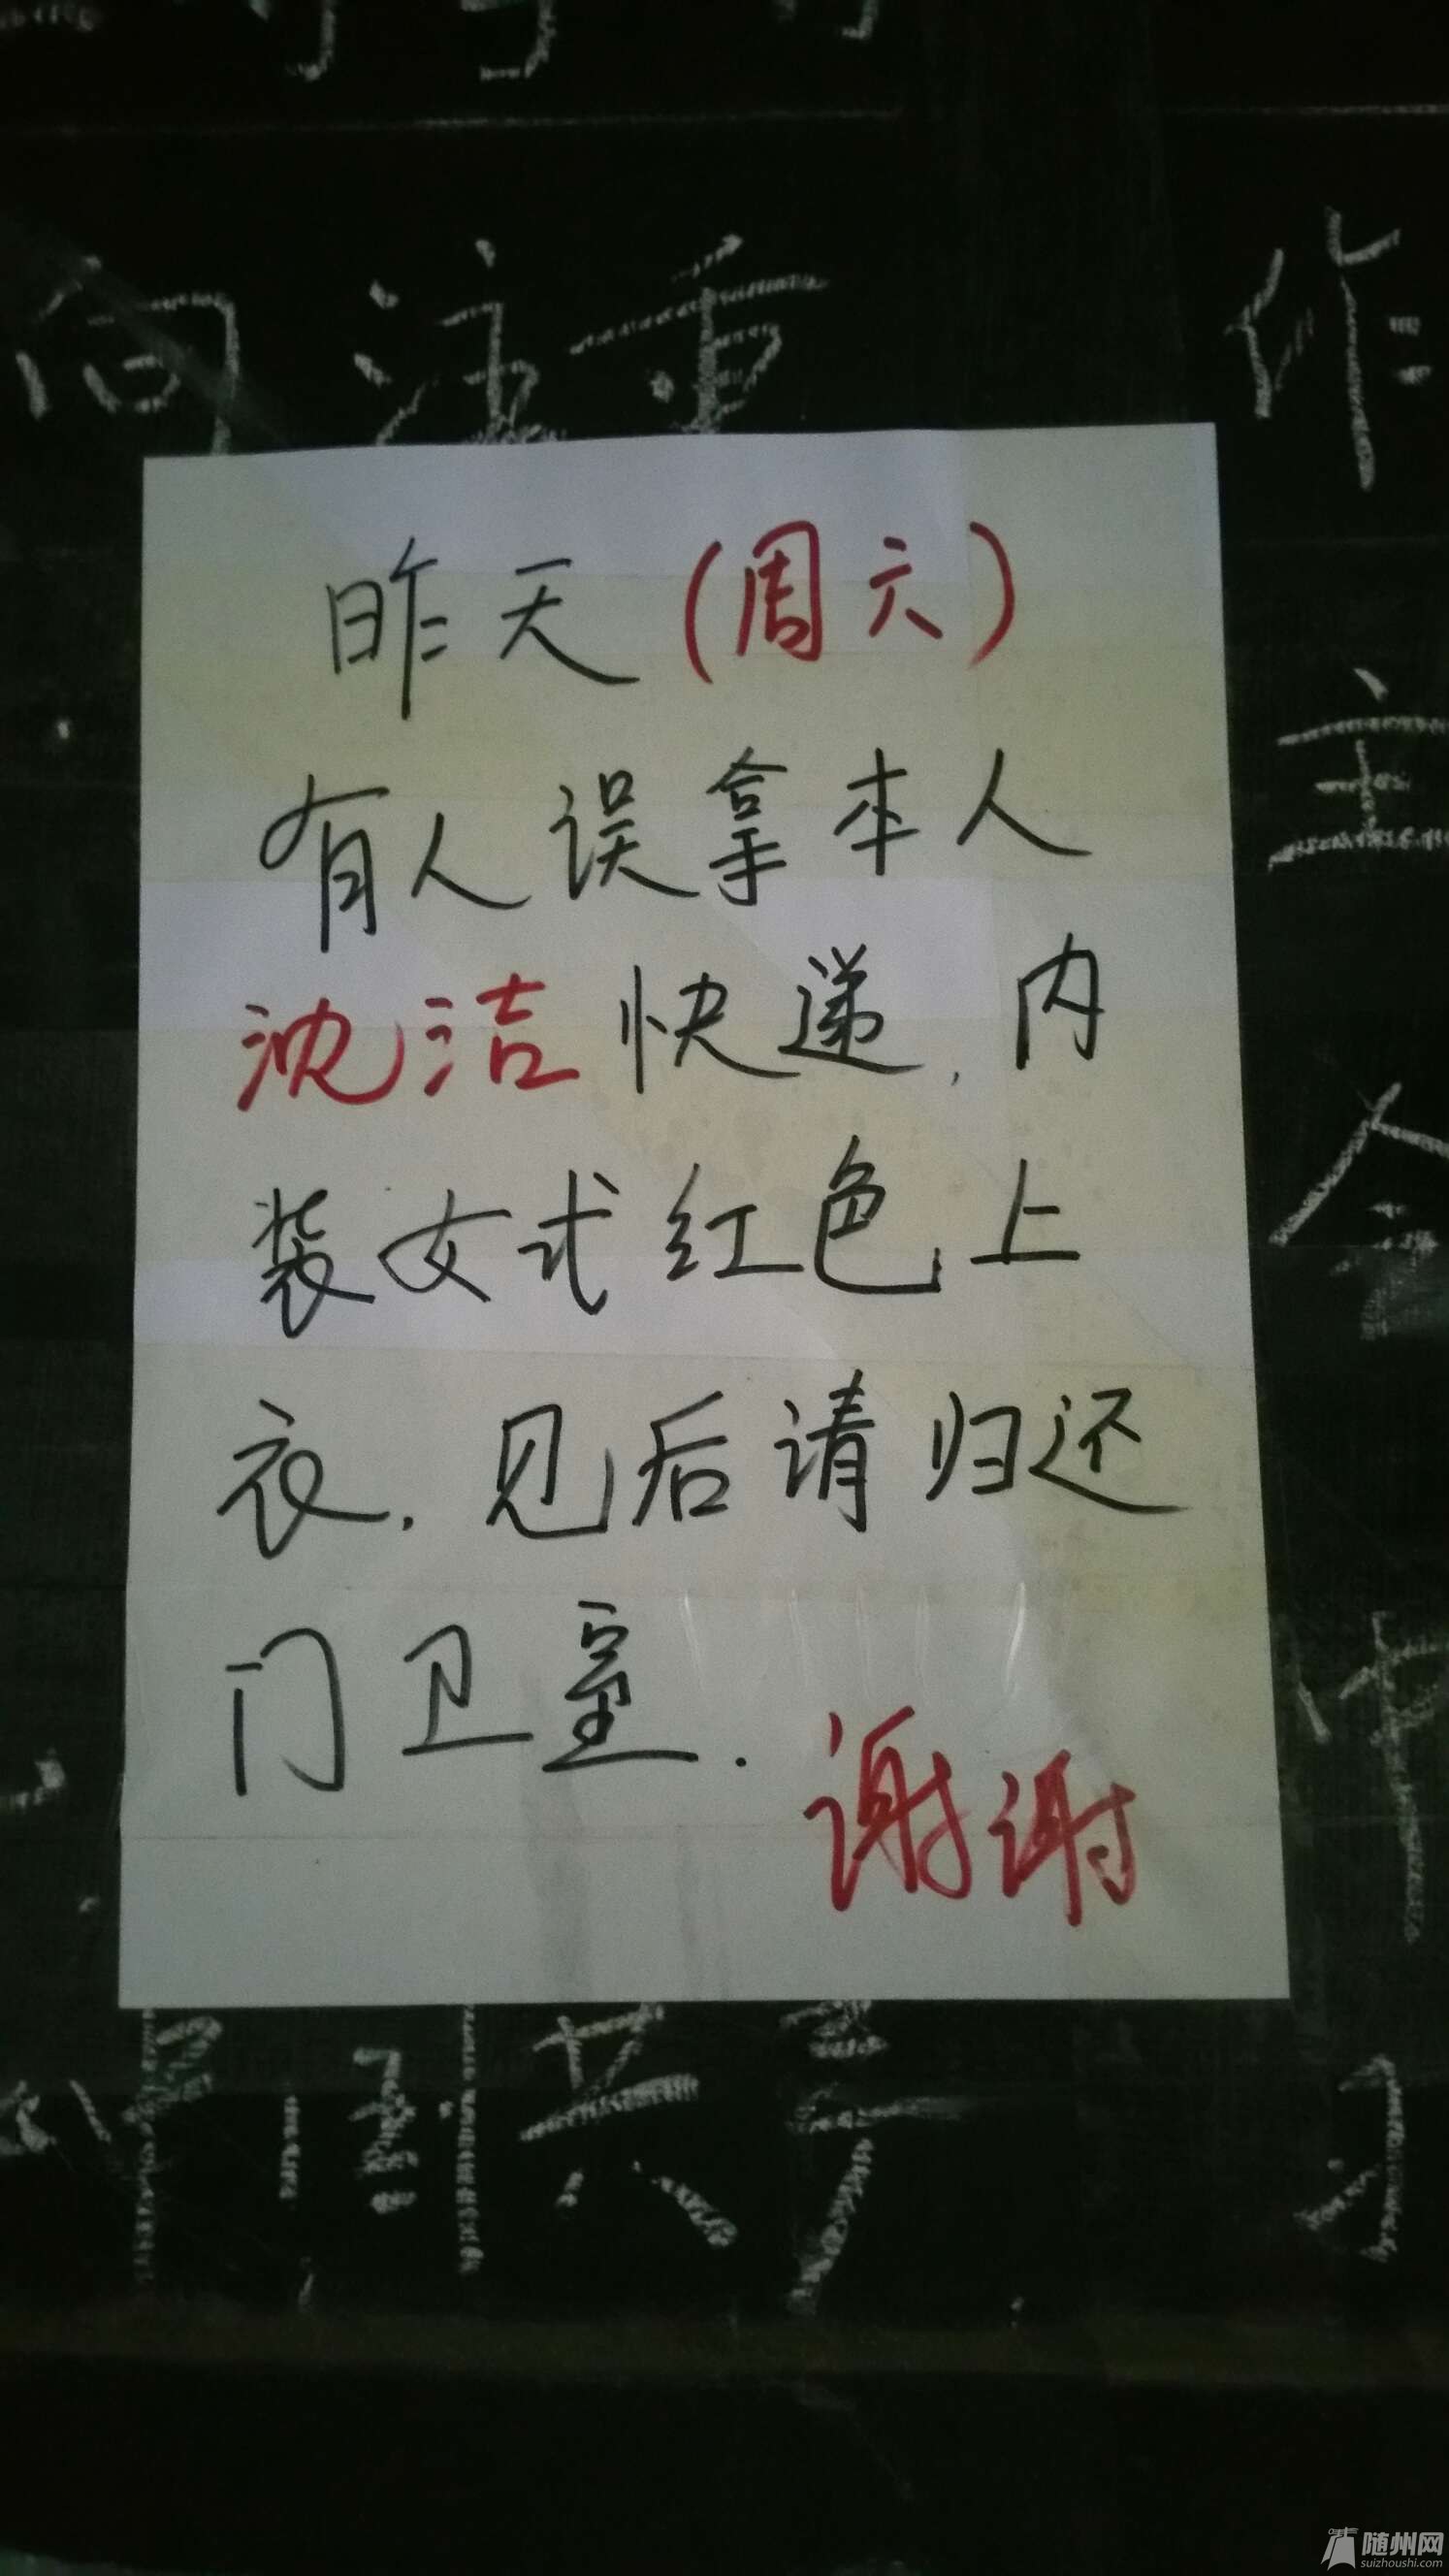 向注重
作
昨天(周六)
有人误拿本人
主
沈洁快递,内
装女式红色上
衣.见后请归还
门卫室.
谢谢
共享
随州网
suizhoushi.com